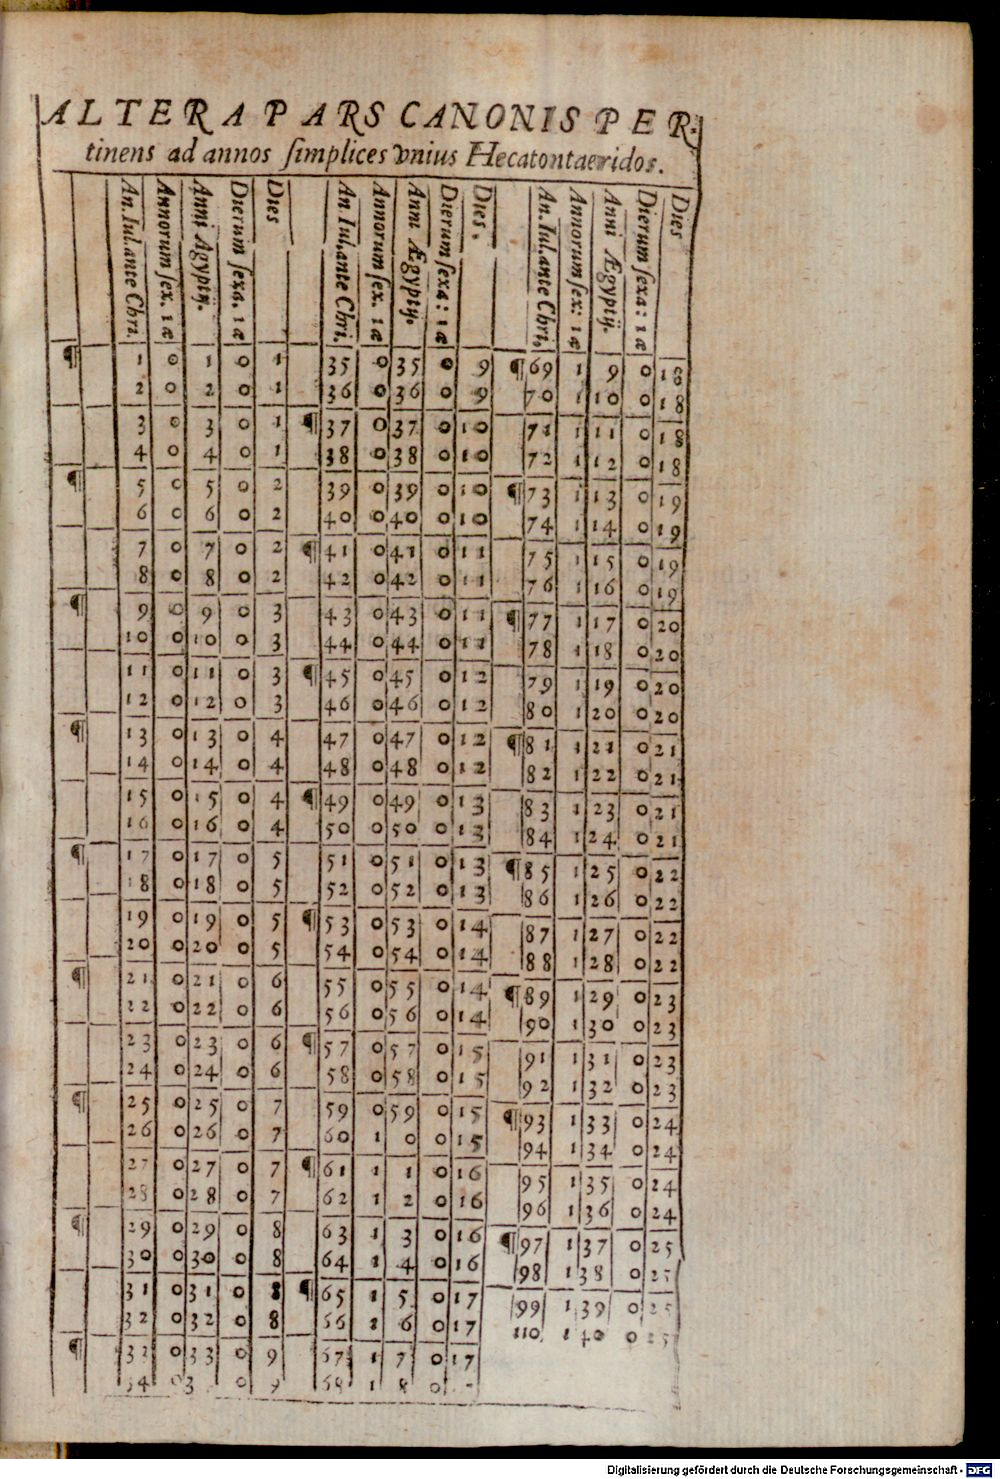 ALTERA PARS CANONIS PER-
tinens ad annos ſimplices vnius Hecatontaeridos.
An. Iul. ante Chri. Annorum ſex. 1æ Anni Ægyptij. Dierum ſexa. 1æ Dies An. Iul. ante Chri. Annorum ſex. 1æ Anni Ægyptij. Dierum ſexa: 1æ Dies. An. Iul. ante Chri. Annorum ſex: 1æ Anni Ægyptij. Dierum ſexa: 1æ Dies
¶ 1 0 1 0 1 35 0 35 0 9 ¶ 69 1 9 0 18
2 0 2 0 1 36 0 36 0 9 70 1 10 0 18
3 0 3 0 1 ¶ 37 0 37 0 10 71 1 11 0 18
4 0 4 0 1 38 0 38 0 10 72 1 12 0 18
¶ 5 0 5 0 2 39 0 39 0 10 ¶ 73 1 13 0 19
6 0 6 0 2 40 0 40 0 10 74 1 14 0 19
7 0 7 0 2 ¶ 41 0 41 0 11 75 1 15 0 19
8 0 8 0 2 42 0 42 0 11 76 1 16 0 19
¶ 9 0 9 0 3 43 0 43 0 11 ¶ 77 1 17 0 20
10 0 10 0 3 44 0 44 0 11 78 1 18 0 20
11 0 11 0 3 ¶ 45 0 45 0 12 79 1 19 0 20
12 0 12 0 3 46 0 46 0 12 80 1 20 0 20
¶ 13 0 13 0 4 47 0 47 0 12 ¶ 81 1 21 0 21
14 0 14 0 4 48 0 48 0 12 82 1 22 0 21
15 0 15 0 4 ¶ 49 0 49 0 13 83 1 23 0 21
16 0 16 0 4 50 0 50 0 13 84 1 24 0 21
¶ 17 0 17 0 5 51 0 51 0 13 ¶ 85 1 25 0 22
18 0 18 0 5 52 0 52 0 13 86 1 26 0 22
19 0 19 0 5 ¶ 53 0 53 0 14 87 1 27 0 22
20 0 20 0 5 54 0 54 0 14 88 1 28 0 22
¶ 21 0 21 0 6 55 0 55 0 14 ¶ 89 1 29 0 23
22 0 22 0 6 56 0 56 0 14 90 1 30 0 23
23 0 23 0 6 ¶ 57 0 57 0 15 91 1 31 0 23
24 0 24 0 6 58 0 58 0 15 92 1 32 0 23
¶ 25 0 25 0 7 59 0 59 0 15 ¶ 93 1 33 0 24
26 0 26 0 7 60 1 0 0 15 94 1 34 0 24
27 0 27 0 7 ¶ 61 1 1 0 16 95 1 35 0 24
28 0 28 0 7 62 1 2 0 16 96 1 36 0 24
¶ 29 0 29 0 8 63 1 3 0 16 ¶ 97 1 37 0 25
30 0 30 0 8 64 1 4 0 16 98 1 38 0 25
31 0 31 0 8 ¶ 65 1 5 0 17 99 1 39 0 25
32 0 32 0 8 66 1 6 0 17 110 1 40 0 25
¶ 33 0 33 0 9 67 1 7 0 17
34 0 3 0 9 68 1 8 0
Digitalisierung gefördert durch die Deutsche Forschungsgemeinschaft - DFG